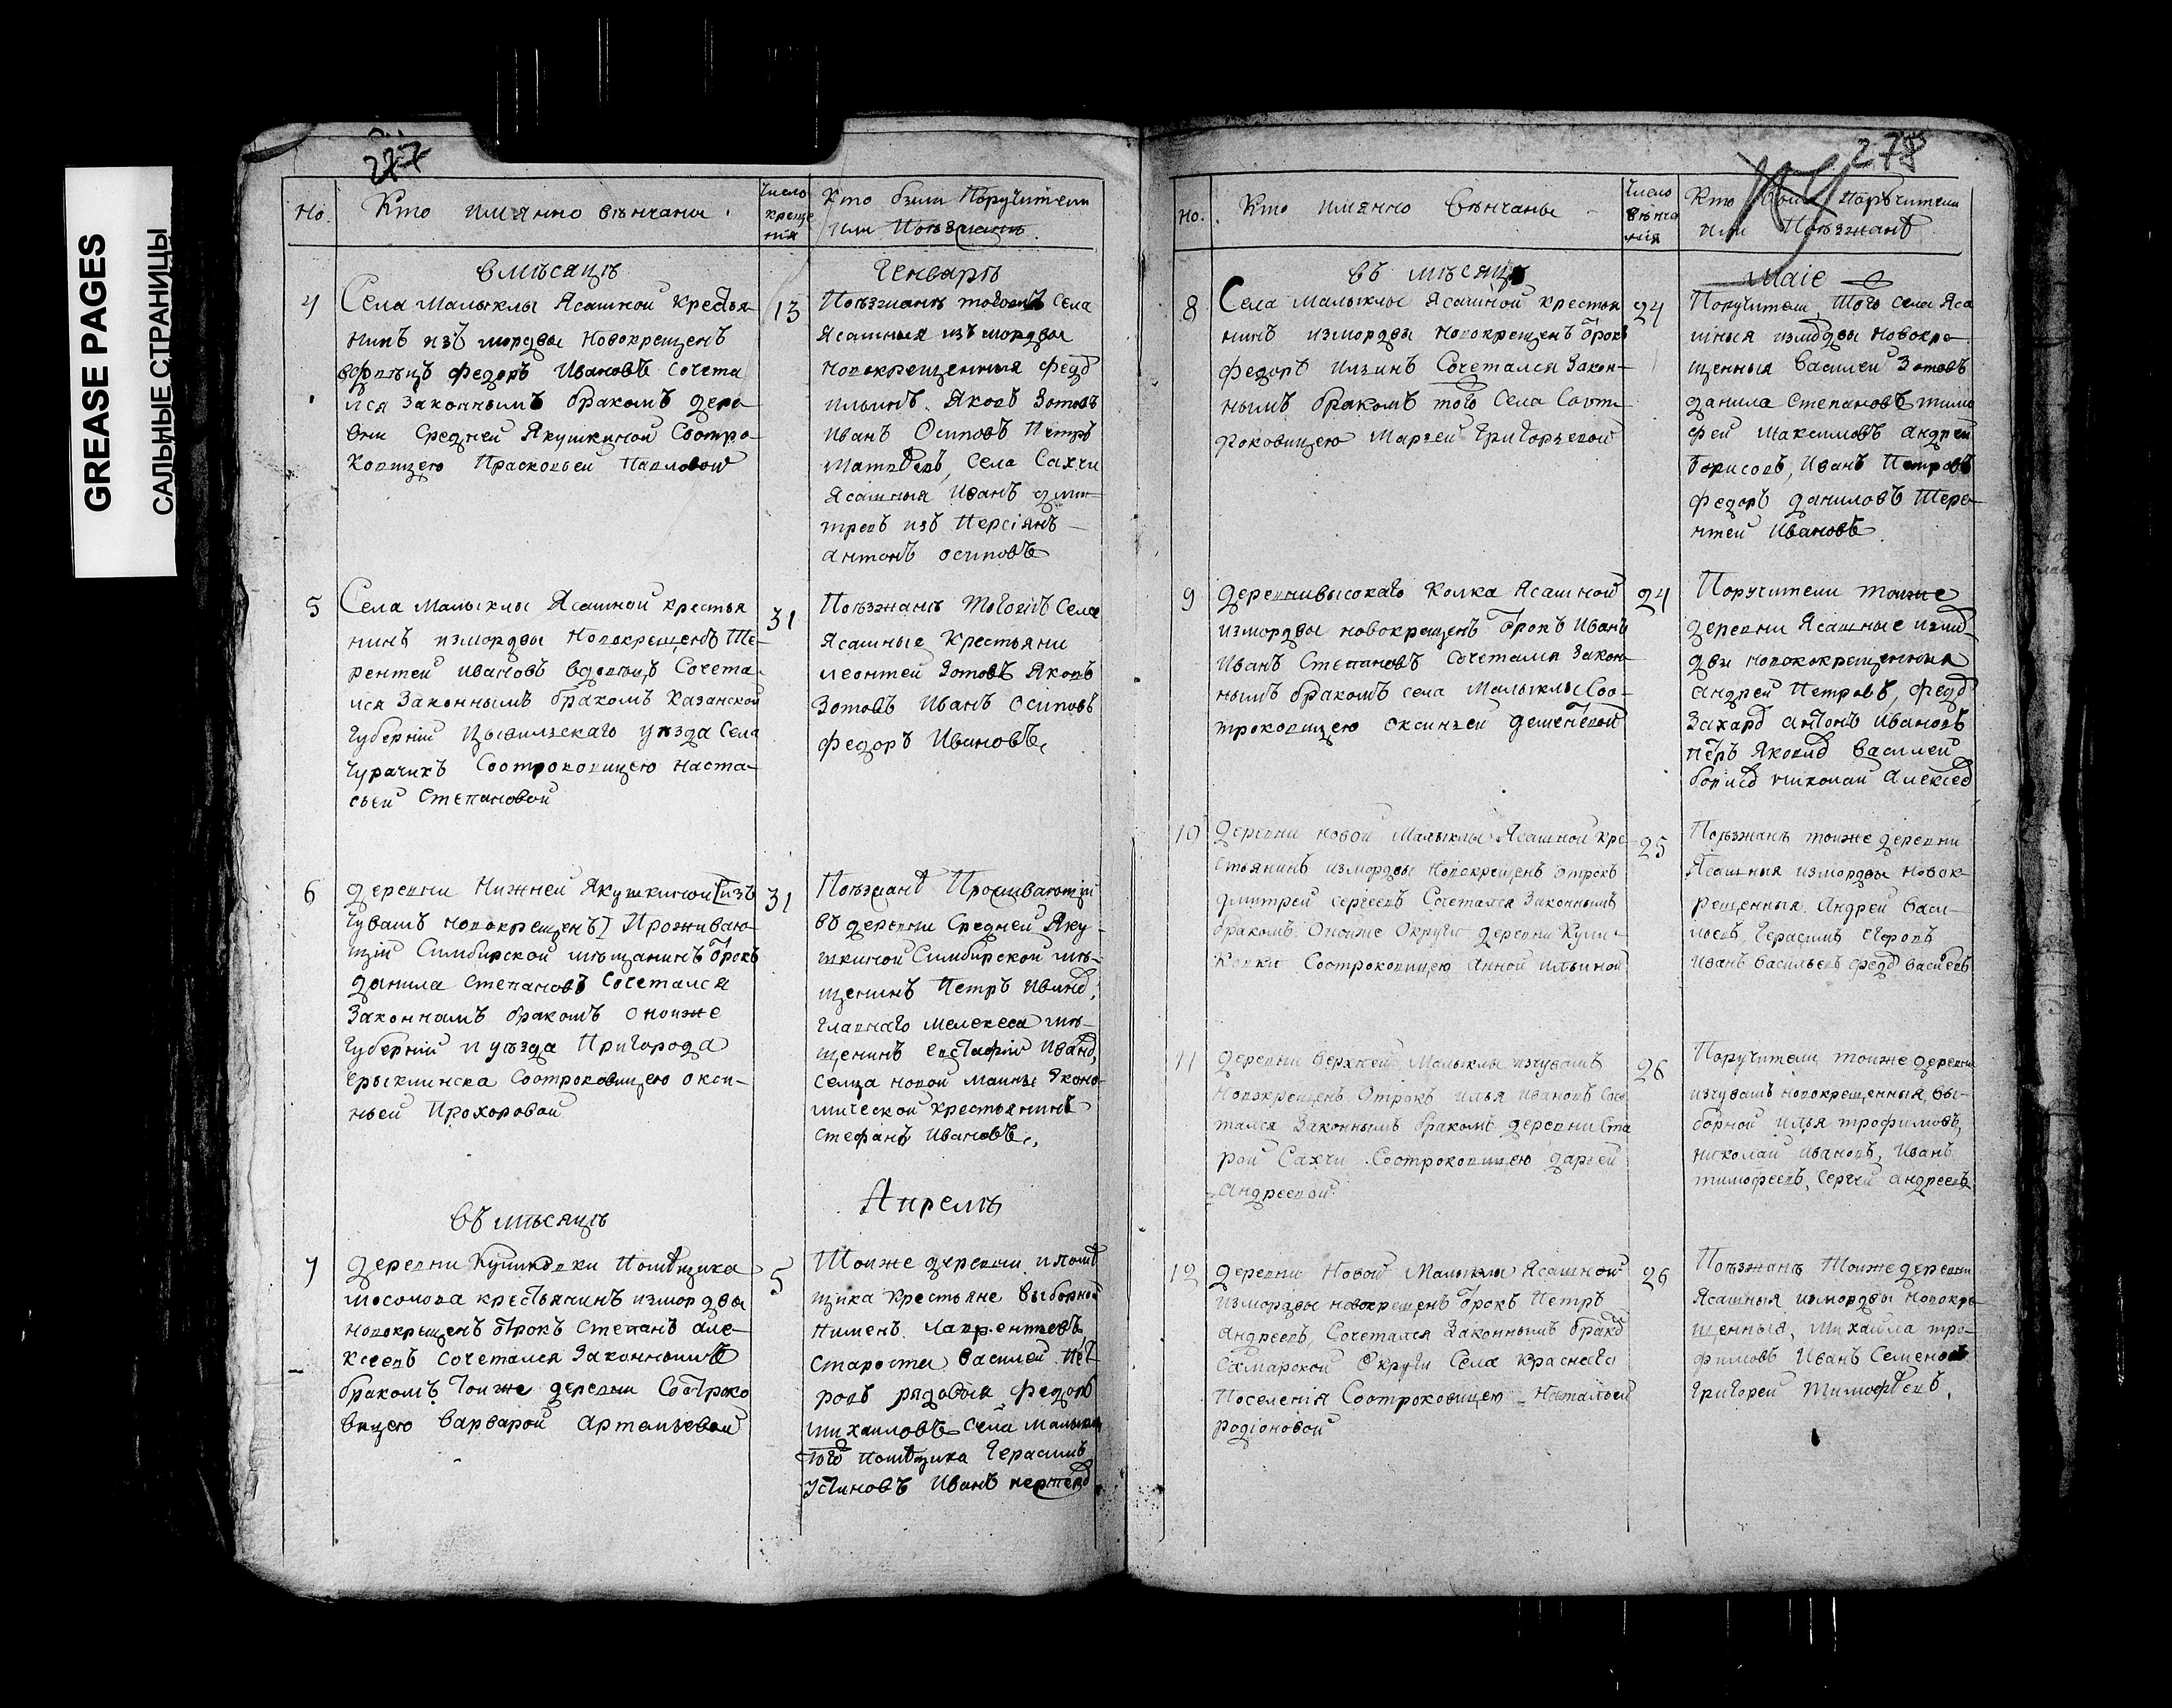 GREASE PAGES
САЛЬНЫЕ СТРАНИЦЫ
277
Но.
Кто имянно венчаны
Число
креще
нія
Кто были Поручители
или Поезжанѣ
вмѣсяцѣ
Генварѣ
4
Села Малыклы Ясашной крестья-
нинъ изъ мордвы Новокрещенъ
вдовецъ Федоръ Ивановъ сочета
лся законнымъ бракомъ дере-
вни Средней Якушкиной Соотро-
ковицею Прасковьей Павловой
13
Поезжанѣ тогожъ Села
Ясашныя изъ мордвы
новокрещенныя Федоръ
Ильинъ. Яковъ Зотовъ
Иванъ Осиповъ Петръ
Матвѣевъ, Села Сахчи
Ясашныя Иванъ дми-
тревъ изъ Персіянъ
антонъ осиповъ
5
Села Малыклы Ясашной крестья
нинъ измордвы Новокрещенъ Те-
рентей ивановъ вдовецъ Сочета-
лся Законнымъ бракомъ Казанской
губерніи Цывильскаго уѣзда Села
Чурачикъ Соотроковицею наста-
сьей Степановой
31
Поезжанѣ Тогожъ Села
Ясашные Крестьяни
леонтей Зотовъ Яковъ
Зотовъ Иванъ Осиповъ
Федоръ Ивановъ,
6
деревни Нижней Якушкиной [изъ
Чувашъ новокрещенъ] Прожываю-
щій Симбирской мѣщанинъ Отрокъ
данила Степановъ Сочетался
Законнымъ бракомъ оноиже
губерніи и уѣзда Пригорода
Ерыклинска Соотроковицею окси-
ньей Прохоровой
31
Поезжанѣ Проживающіи
въ деревни Средней Яку-
шкиной Симбирской мѣ-
щенинъ Петръ Ивановъ,
главнаго мелекеса мѣ-
щенинъ евстафій Ивановъ,
Селца новой маины Эконо-
мической крестьянинъ
Стефанъ Ивановъ,,
въ мѣсяцѣ
Апрелѣ
7
деревни Помѣщика
мосолова крестьянинъ измордвы
новокрещенъ отрокъ Степанъ але-
ксеевъ сочетался Законнымъ
бракомъ Тоиже деревни Соотроко
вицею Варварой Артемьевой
5
Тоиже деревни и помѣ
щика крестьяне Выборной
Пименъ Лаврентьевъ
Староста Василей Пет
ровъ рядовыя Федоръ
михаиловъ Села малыклы
того помѣщика Герасимъ
Устиновъ Иванъ
278
Но.
Кто имянно Венчаны
Число
венча
нія
Кто были Поручители
или Поезжанѣ
въ мѣсяцѣ
Маіе
8
Села малыклы Ясашной крестья
нинъ измордвы новокрещенъ Отрокъ
Федоръ Илзинъ Сочетался Закон-
нымъ бракомъ того Села Соот-
роковицею Марьей Григорьевой
24
Поручители, Того села Яса
шныя измордвы новокре-
щенныя Василей Зотовъ
данила Степановъ тимо
фей Максимовъ андрей
борисовъ, Иванъ Петровъ
Федоръ даниловъ Тере-
нтей Ивановъ
9
деревнивысокаго Колка Ясашной
измордвы новокрещенъ Отрокъ Иванъ
Иванъ Степановъ Сочетался Закон-
нымъ бракомъ села Малыклы Соо-
троковицею оксиньей дементевой
24
Поручители тоиже
деревни Ясашные измор
двы новококрещенныя
андрей Петровъ, Федоръ
Захаровъ антонъ Ивановъ
петръ Яковлевъ Василей
борисовъ николаи Алексеевъ
10
деревни новой Малыклы Ясашной кре
стьянинъ измордвы новокрещенъ отрокъ
дмитрей Сергеевъ Сочетался Законнымъ
бракомъ Оноиже Округи деревни Кули-
ковки Соотроковицею Анной ильиной
25
Поезжанѣ тоиже деревни
Ясашныя измордвы новок-
рещенныя Андрей васи-
левъ, Герасимъ Егоровъ
Иванъ Васильевъ Федоръ Василевъ
11
деревни Верхней Малыклы изчувашъ
новокрещенъ Отрокъ илья ивановъ Соче
тался Законнымъ бракомъ деревни Ста
рой Сахчи Соотроковицею дарьей
андреевой
26
Поручители тоиже деревни
изчувашъ новокрещенныя, Вы-
борной илья трофимовъ,
николаи ивановъ, Иванъ
тимофеевъ, Сергей андреевъ
12
деревни Новой Малыклы Ясашной
измордвы новокрещенъ Отрокъ Петръ
андреевъ, Сочетался Законнымъ бракомъ
Самарской Округи Села Краснаго
Поселенія Соотроковицею Натальей
родіоновой
26
Поезжанѣ Тоиже деревни
Ясашныя измордвы новокре-
щенныя, михаила тро-
фимовъ Иванъ Семеновъ
григорей Тимофѣевъ,